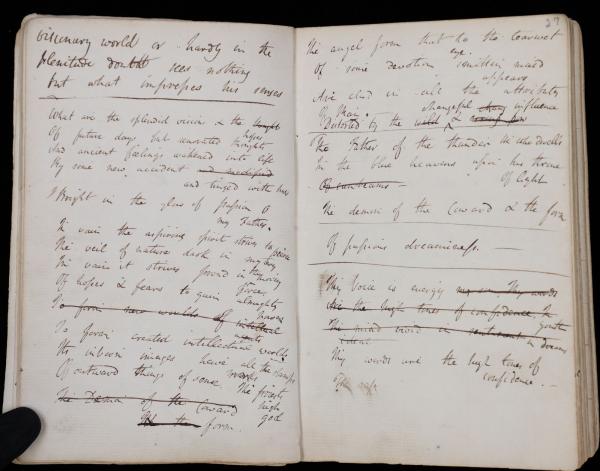 visionary world or hardly in the
plenitude doubt sees nothing
but what impresses his senses
What are the splendid visions & the bright
hopes
Of future days but unnoted thoughts
And ancient feelings wakened into life
By some new accident and modified
and tinged with hues
Bright in the glow of passion O
my Father.
In vain the aspiring spirit strives to pierce
The veil of nature dark in mystery
In vain it strives proud in thinking
Of hopes & fears to gain almighty
force
To form new worlds of intellectual
To form created intellectual worlds.
Its visions images have all the stamps
marks
Of outward things of some
The priests
The Demon of the Coward high
god
form.
27
The angel form that to the tearwet
eye.
Of some devotion smitten maid
appears
Are clad in all the attributes
Of Man. changeful influence
Distorted by the &
The Father of the thunder He who dwells
In the blue heavens upon his throne
Of sunbeams Of light
The demon of the Coward & the form
Of passions dreaminess.
Thy Voice is energy Thy words
Are the high tones of confidence, the
youth
The mind in dreams
Thy words are the high tones of
confidence. —